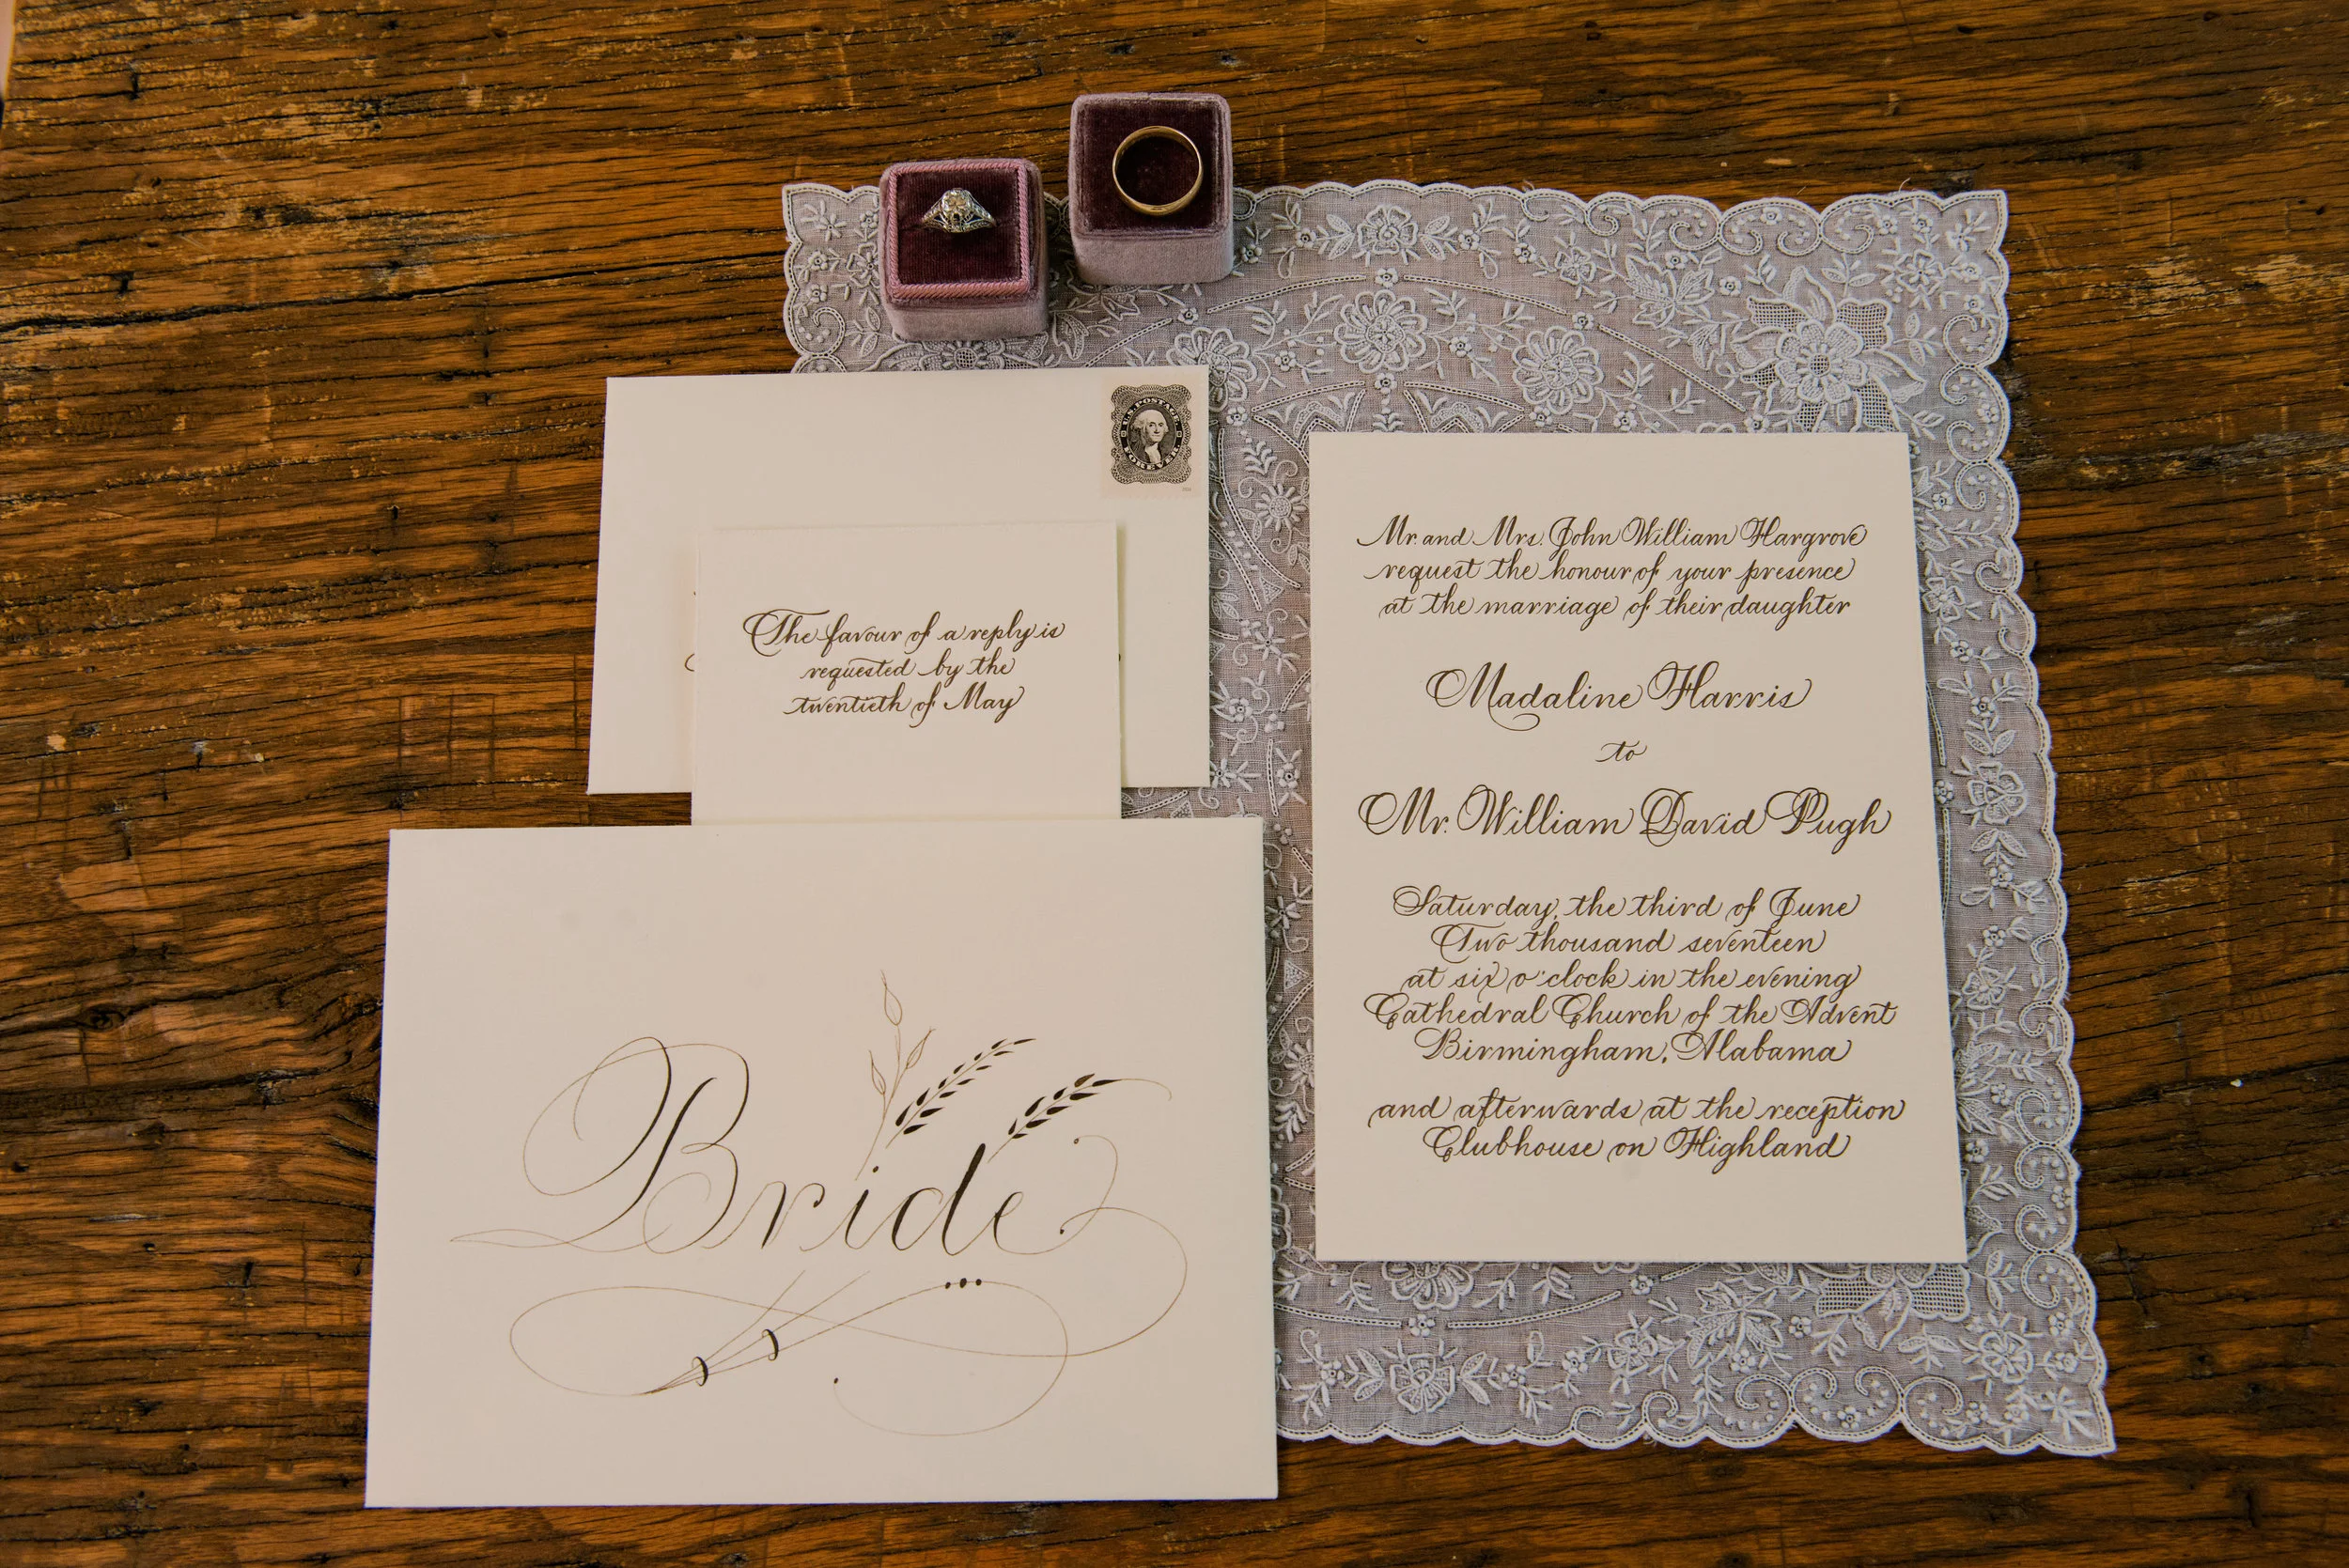 U.S. POSTAGE
FOREVER
The favour of a reply is
requested by the
twentieth of May
Bride
Mr. and Mrs. John William Hargrove
request the honour of your presence
at the marriage of their daughter
Madaline Harris
to
Mr. William David Pugh
Saturday, the third of June
Two thousand seventeen
at six o'clock in the evening
Cathedral Church of the Advent
Birmingham, Alabama
and afterwards at the reception
Clubhouse on Highland